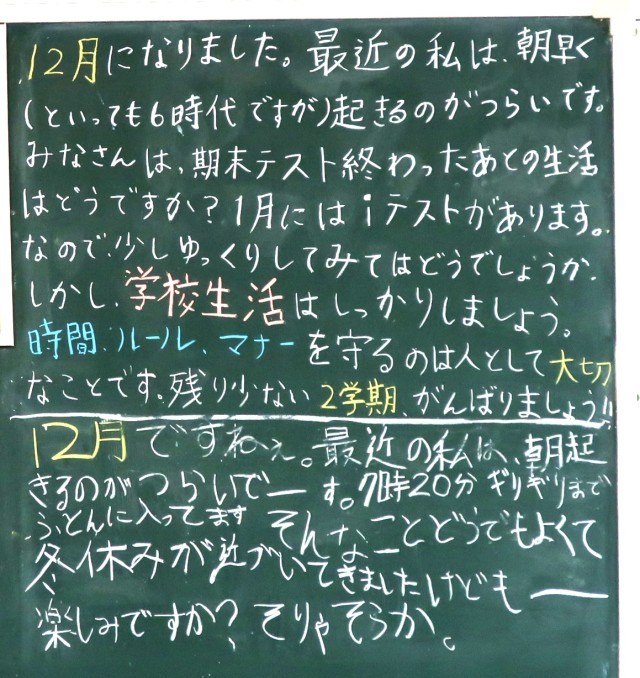 12月になりました。最近の私は、朝早く
(といっても6時代ですが)起きるのがつらいです。
みなさんは、期末テスト終わったあとの生活
はどうですか?1月にはiテストがあります。
なので、少しゆっくりしてみてはどうでしょうか。
しかし、学校生活はしっかりしましょう。
時間、ルール、マナーを守るのは人として大切
なことです。残り少ない2学期、がんばりましょう!!
12月ですねぇ。最近の私は、朝起
きるのがつらいでーす。7時20分ギリギリまで
ふとんに入ってます そんなことどうでもよくて
冬休みが近づいてきましたけどもー
楽しみですか?そりゃそうか。